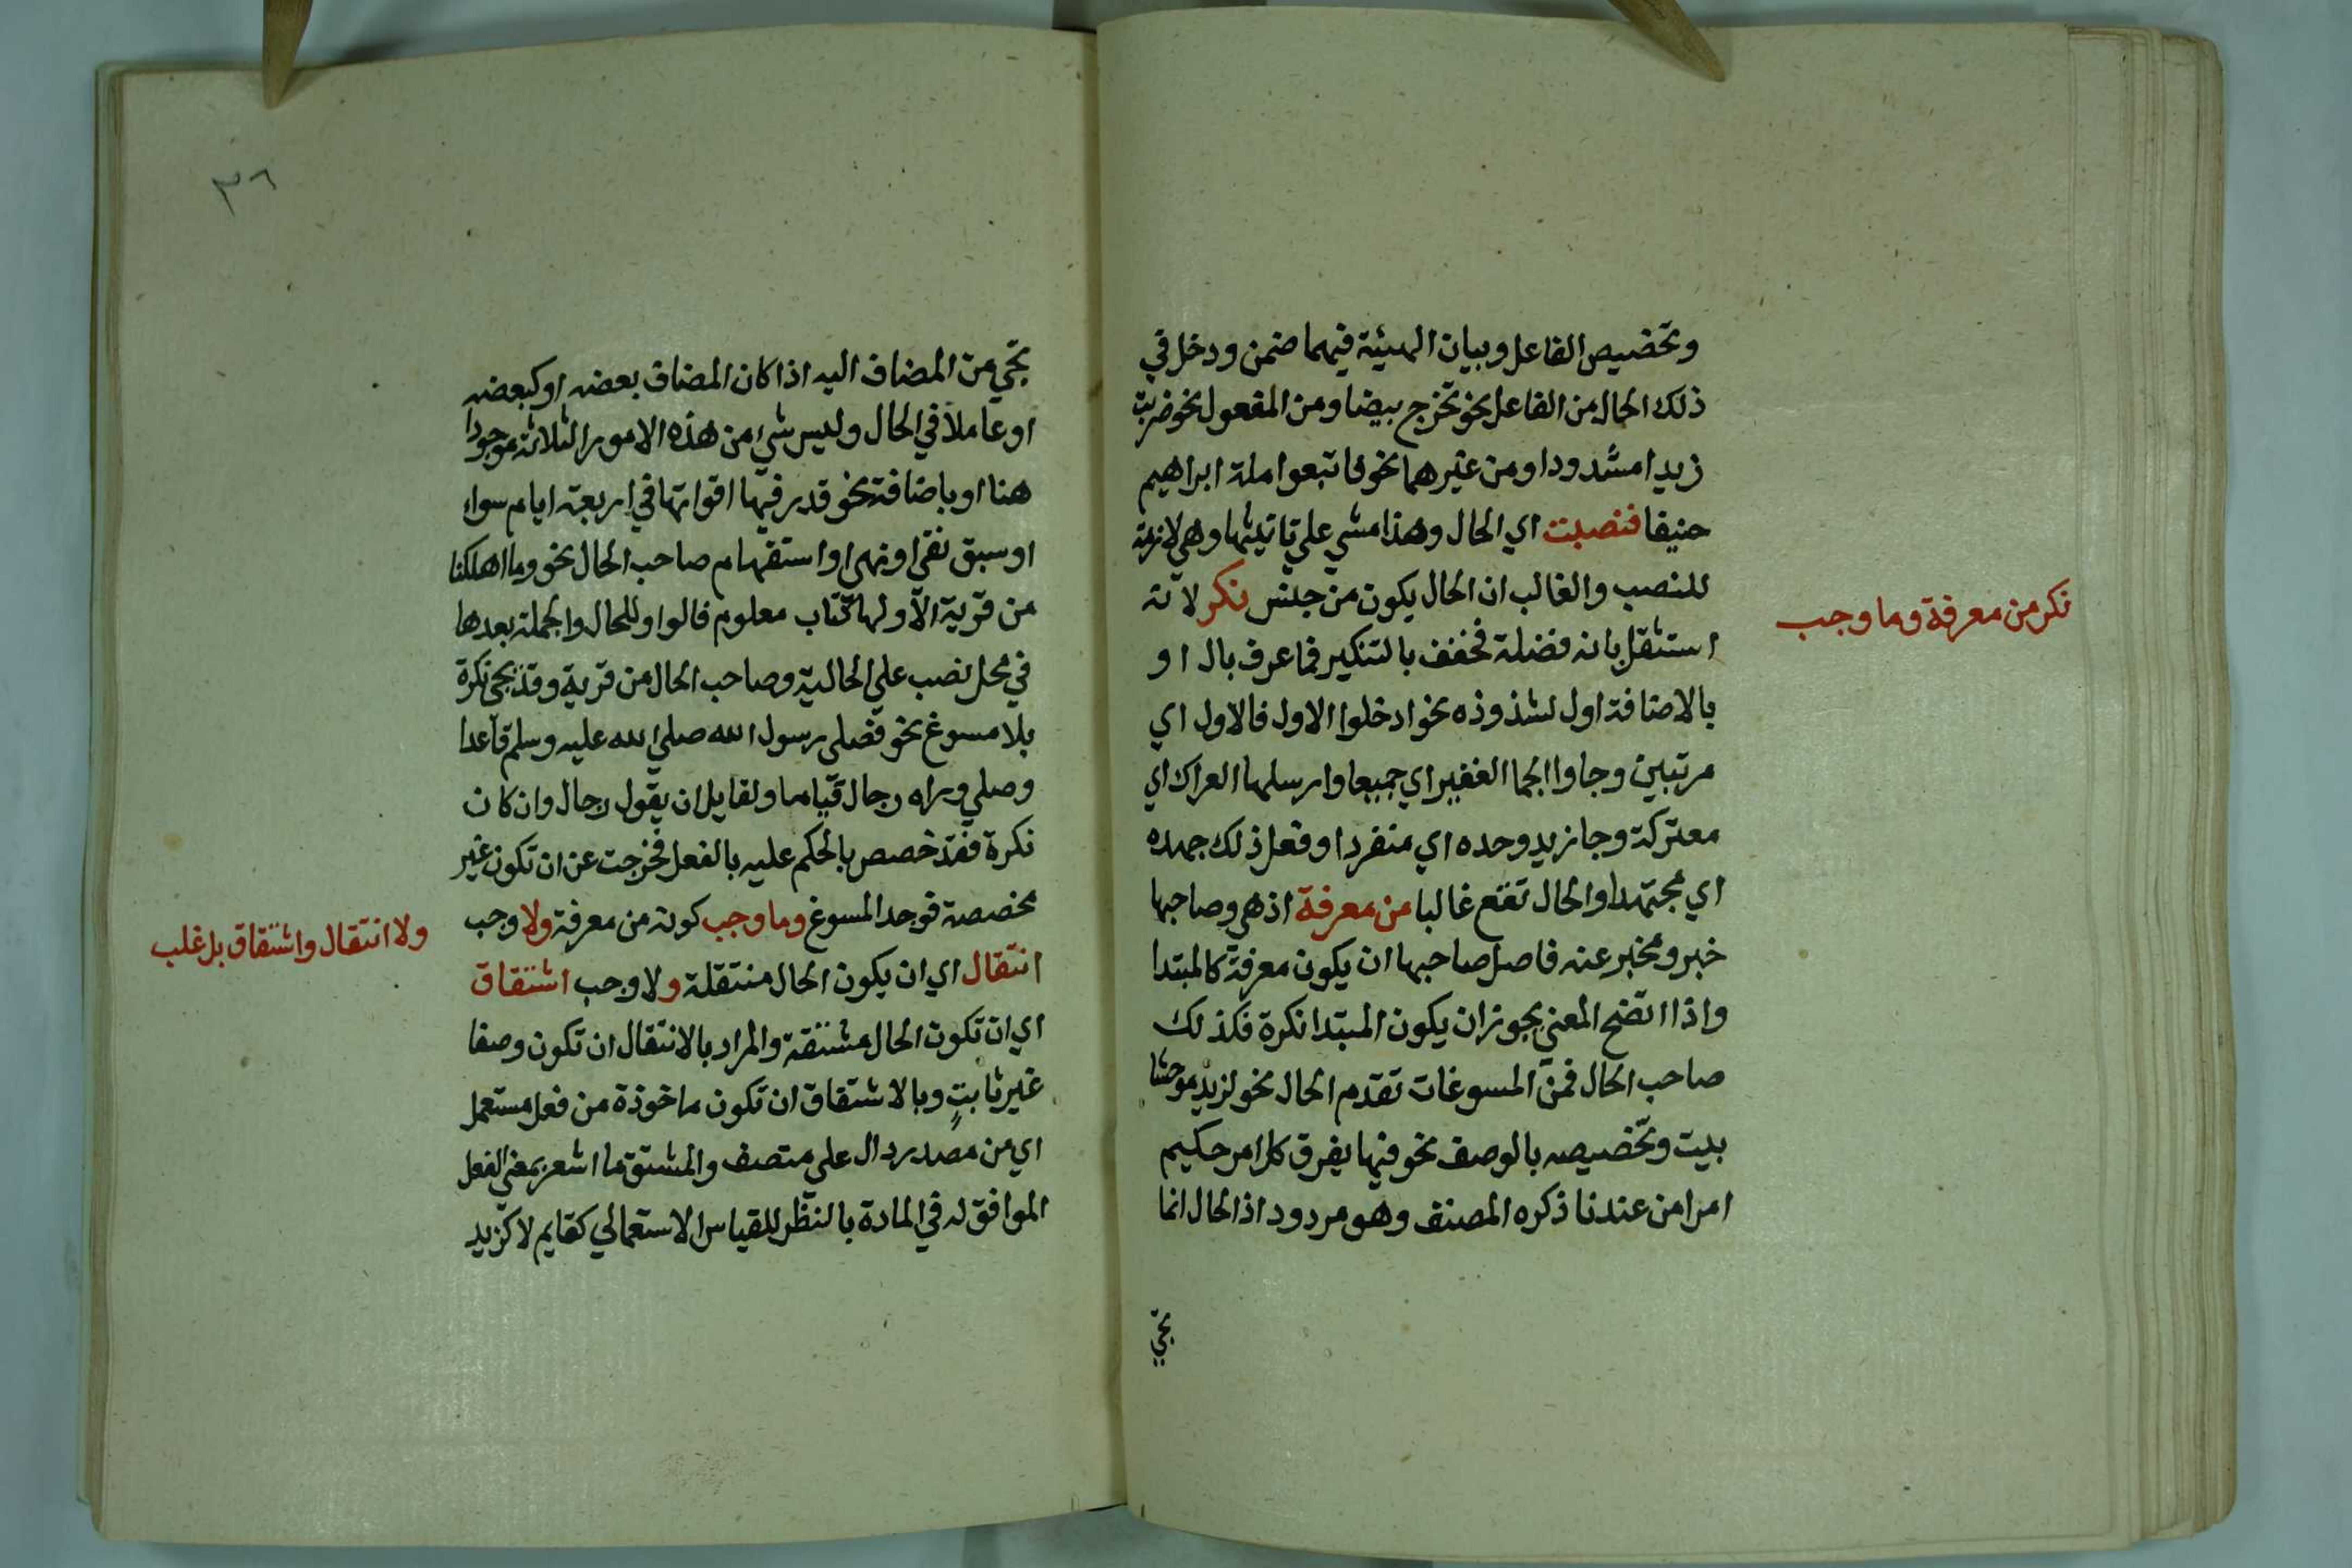 وتخصيص الفاعل وبيان الهيئة فيهما ضمن ودخل في
ذلك الحال من الفاعل نحو تخرج بيضا ومن المفعول نحو ضربت
زيدا مشدودا ومن غيرهما نحو فاتبعوا ملة ابراهيم
حنيفا فنصبت اي الحال وهذا مشي علي تانيثها وهي لازمة
للنصب والغالب ان الحال يكون من جنس نكر لانه
نكر من معرفة وما وجب
استثقل بانه فضلة فخفف بالتنكير فما عرف بال او
بالاضافة اول لشذوذه نحو ادخلوا الاول فالاول اي
مرتبين وجاوا الجما الغفير اي جميعا وارسلها العراك اي
معتركة وجا زيد وحده اي منفردا وفعل ذلك جهده
اي مجتهدا والحال تقع غالبا من معرفة اذ هي وصاحبها
خبر ومخبر عنه فاصل صاحبها ان يكون معرفة كالمبتدا
واذا اتضح المعني يجوز ان يكون المبتدا نكرة فكذلك
صاحب الحال فمن المسوغات تقدم الحال نحو لزيد موحشا
بيت وتخصيصه بالوصف نحو فيها يفرق كل امر حكيم
امرا من عندنا ذكره المصنف وهو مردود اذ الحال انما
تجي
٣٦
تجي من المضاف اليه اذا كان المضاف بعضه او كبعضه
او عاملا في الحال وليس شي من هذه الامور الثلاثة موجودا
هنا او باضافة نحو قدر فيها اقواتها في اربعة ايام سواء
او سبق نفي او نهي او استفهام صاحب الحال نحو وما اهلكنا
من قرية الا ولها كتاب معلوم فالواو للحال والجملة بعدها
في محل نصب علي الحالية وصاحب الحال من قرية وقد يجي نكرة
بلا مسوغ نحو فصلي رسول الله صلي الله عليه وسلم قاعدا
وصلي وراه رجال قياما ولقايل ان يقول رجال وان كان
نكرة فقد خصص بالحكم عليه بالفعل فخرجت عن ان تكون غير
مخصصة فوجد المسوغ وما وجب كونه من معرفة ولا وجب
ولا انتقال واشتقاق بل غلب
انتقال اي ان يكون الحال منتقلة ولا وجب اشتقاق
اي ان تكون الحال مشتقة والمراد بالانتقال ان تكون وصفا
غير ثابت وبالاشتقاق ان تكون ماخوذة من فعل مستعمل
اي من مصدر دال علي متصف والمشتق ما اشعر بمعني الفعل
الموافق له في المادة بالنظر للقياس الاستعمالي كقايم لا كزيد